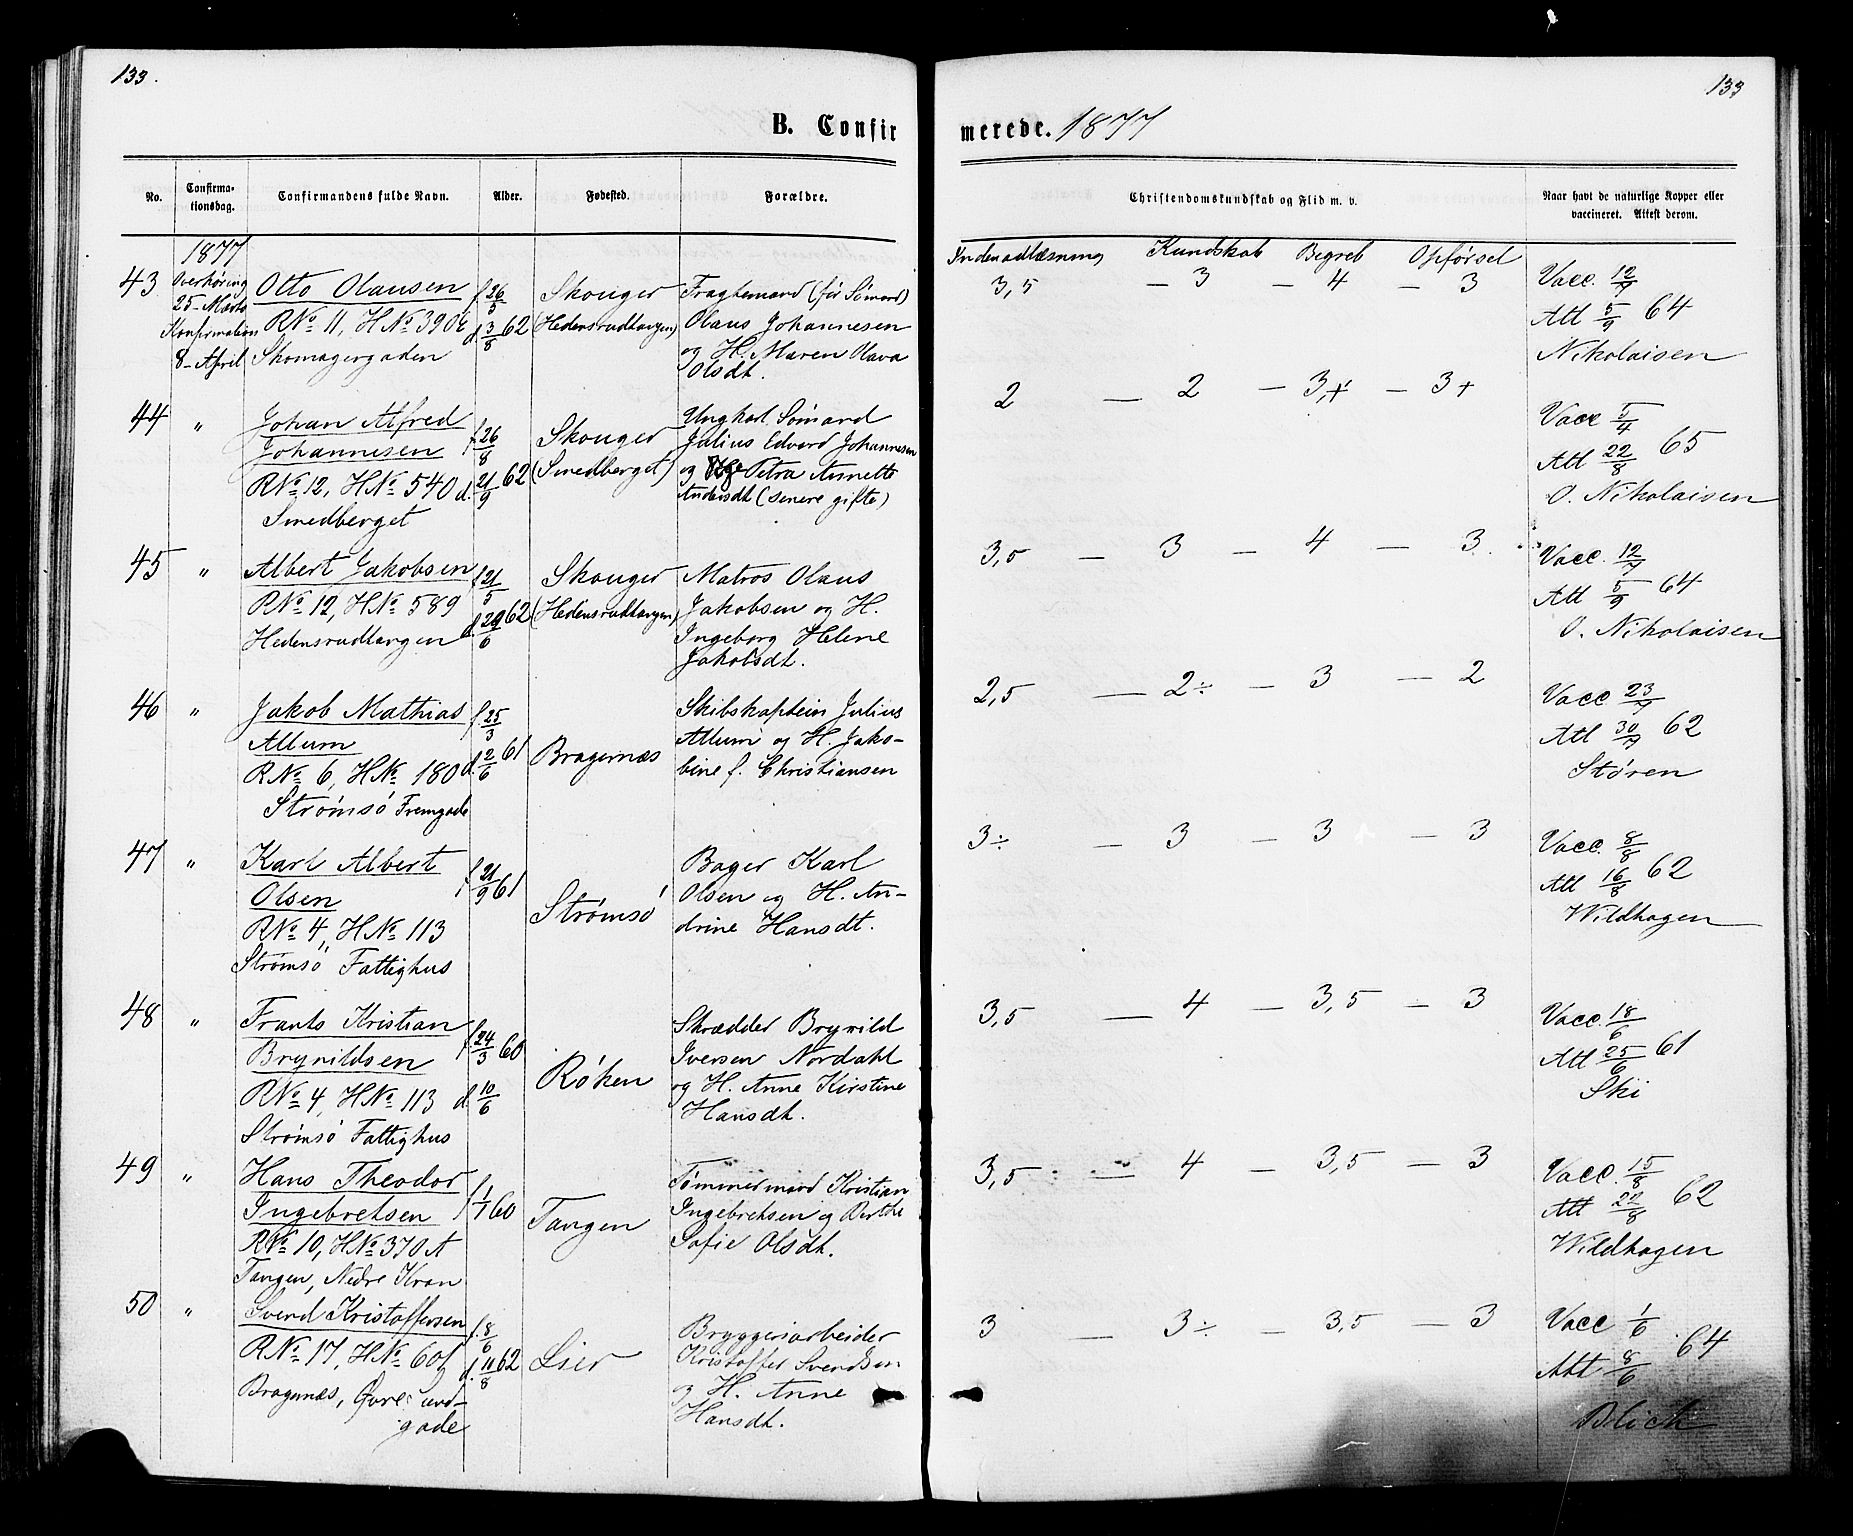 133.
133
B. Confir
merede. 1877
No.
Confirma-
tionsdag.
Confirmandens fulde Navn.
Alder.
Fødested.
Forældre.
Christendomskundskab og Flid m. v.
Naar havt de naturlige Kopper eller
vaccineret. Attest derom.
1877
Overhøring
25- Marts
Konfirmation
8- April
Indenadlæsning Kundskab Begreb Opførsel
43
Otto Olausen
RNo 11, HNo 390
Skomagergaden
f. 26/5
d. 3/8 62
Skouger
(Hedensrudtangen)
Fragtemand (før Sømand)
Olaus Johannesen
og H. Maren Olava
Olsdt.
3,5 - 3 - 4 - 3
Vacc. 12/7
Att 5/9 64
Nikolaisen
44 "
Johan Alfred
Johannesen
RNo 12, HNo 540
Smedberget
f. 26/8
d. 21/9 62
Skouger
(Smedberget)
Ungkarl Sømand
Julius Edvard Johannesen
og Pge Petra Annette
Andersdt (senere gifte)
2 - 2 - 3,+ - 3+
Vacc 5/4
Att 22/8 65
O. Nikolaisen
45 "
Albert Jakobsen
RNo 12, HNo 589
Hedensrudtangen
f. 21/5
d. 29/6 62
Skouger
(Hedensrudtangen)
Matros Olaus
Jakobsen og H.
Ingeborg Helene
Jakobsdt.
3,5 - 3 - 4 - 3.
Vacc. 12/7
Att 5/9 64
O. Nikolaisen
46 "
Jakob Mathias
Allum
RNo 6, HNo 180
Strømsø Fremgade
f. 25/3
d. 2/6 61
Bragernæs
Skibskaptein Julius
Allum og H. Jako-
bine f. Christiansen
2,5 - 2÷ - 3 - 2
Vacc 23/7
Att 30/7 62
Støren
47 "
Karl Albert
Olsen
RNo 4, HNo 113
Strømsø Fattighus
f. 21/9 61
Strømsø
Bager Karl
Olsen og H. An-
drine Hansdt.
3÷ - 3 - 3 - 3
Vacc. 8/8
Att 16/8 62
Wildhagen
48 "
Frants Kristian
Brynildsen
RNo 4, HNo 113
Strømsø Fattighus
f. 24/3 60
d. 10/6
Røken
Skrædder Brynild
Iversen Nordahl
og H. Anne Kirstine
Hansdt.
3,5 - 4 - 3,5 - 3
Vacc. 18/6
Att 25/6 61
Ski
49 "
Hans Theodor
Ingebretsen
RNo 10, HNo 370 A
Tangen, Nedre Kran
f. 1/1 60
Tangen
Tømmermand Kristian
Ingebretsen og Berthe
Sofie Olsdt.
3,5 - 4 - 3,5 - 3
Vacc. 15/8
Att 22/8 62
Wildhagen
50 "
Svend Kristoffersen
RNo 17, HNo 601
Bragernæs, Øvre Sund-
gade
f. 8/6
d. 11/8 62
Lier
Bryggeriarbeider
Kristoffer Svendsen
og H. Anne
Hansdt.
3 - 3÷ - 3,5 - 3
Vacc 1/6
Att 8/6 64
Blich